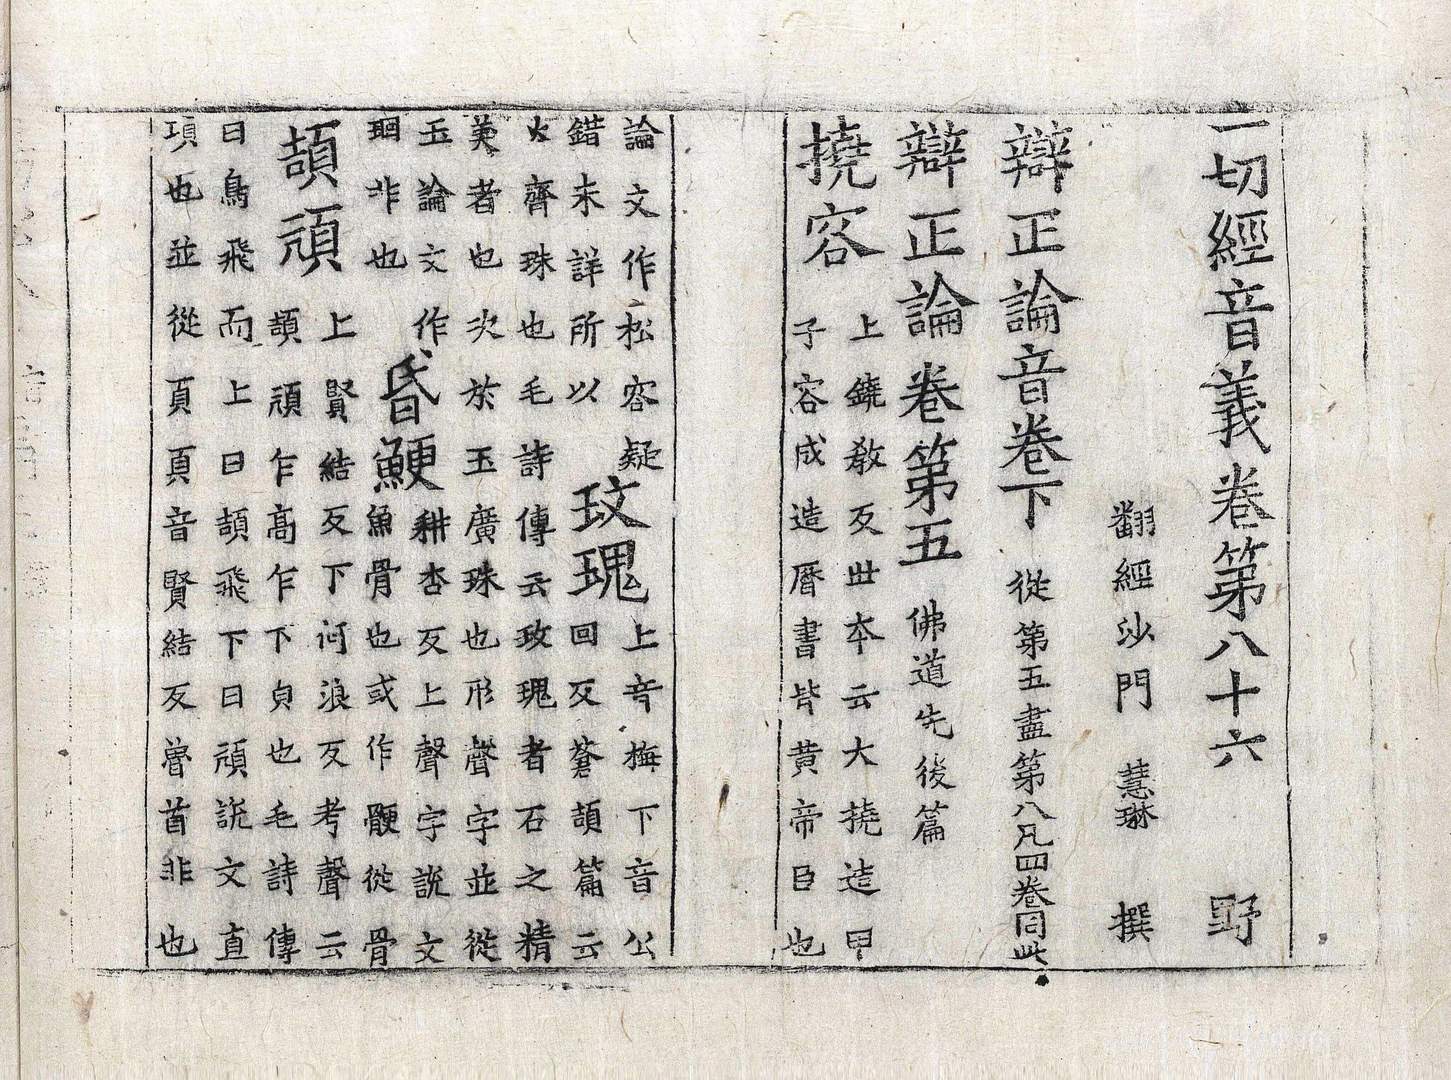 一切經音義卷第八十六 野
翻經沙門 慧琳 撰
辯正論音卷下 從第五盡第八凡四卷同此
辯正論卷第五 佛道先後篇
撓容 上鐃教反世本云大撓造甲
子容成造曆書皆黃帝臣也
論文作松容疑
錯未詳所以
玟瑰 上音梅下音公
回反蒼頡篇云
火齊珠也毛詩傳云玫瑰者石之精
美者也次於玉廣珠也形聲字並從
玉論文作
非也
昏鯁 耕杏反上聲字說文
魚骨也或作骾從骨
頡頏 上賢結反下訶浪反考聲云
頡頏乍高乍下貞也毛詩傳
曰鳥飛而上曰頡飛下曰頏說文直
項也並從頁頁音賢結反首非也